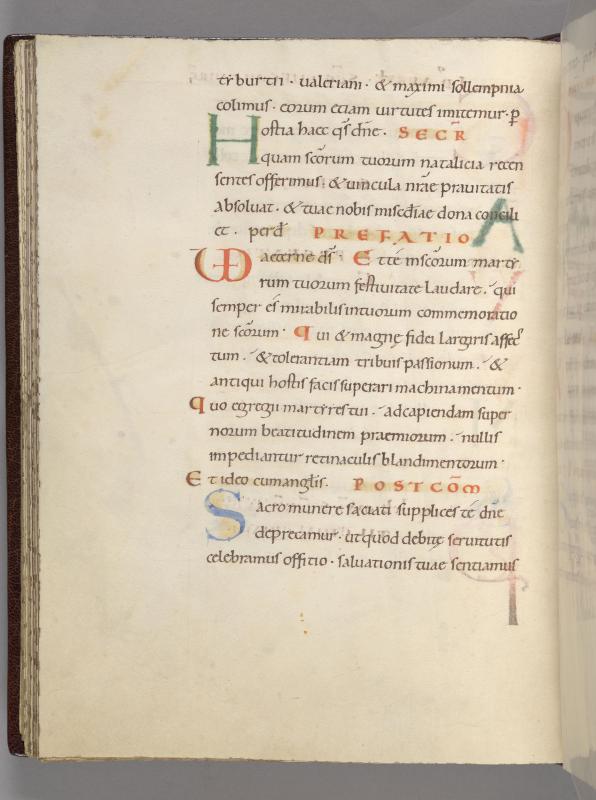 tyburtii · ualeriani · & maximi sollempnia
colimus · eorum etiam uirtutes imitemur · p̄
Hostia haec qs̄ dn̄e · SECR̄
quam sc̄orum tuorum natalicia recen
sentes offerimus · & uincula nr̄ae prauitatis
absoluat · & tuae nobis miscdīae dona concili
et · per d PREFATIO
VD aeterne ds̄ · Et te in sc̄orum marty
rum tuorum festiuitate laudare · qui
semper es mirabilis in tuorum commemoratio
ne sc̄orum · Qui & magnę fidei largiris affec
tum · & tolerantiam tribuis passionum · &
antiqui hostis facis superari machinamentum ·
Quo egregii martyres tui · ad capiendam super
norum beatitudinem praemiorum · nullis
impediantur retinaculis blandimentorum ·
Et ideo cum anglis · POSTCOM̄
Sacro munere saciati supplices te dn̄e
deprecamur · ut quod debitę seruitutis
celebramus offitio · saluationis tuae sentiamus